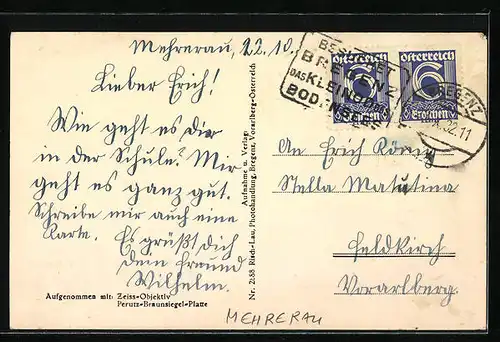 Mehrerau, 22.10.
Lieber Erich!
Wie geht es dir
in der Schule? Mir
geht es ganz gut.
Schreibe mir auch eine
Karte. Es grüßt dich
dein Freund
Wilhelm.
Aufgenommen mit: Zeiss-Objektiv
Perutz-Braunsiegel-Platte
Nr. 2:88 Rhein-Lau, Photohandlung, Bregenz, Vorarlberg-Österreich
Aufnahme u. Verlag
DAS KLEINOD
österreich
6
Groschen
österreich
6
Groschen
BREGENZ
An Erich
Stella Matutina
Feldkirch
Vorarlberg.
MEHRERAU